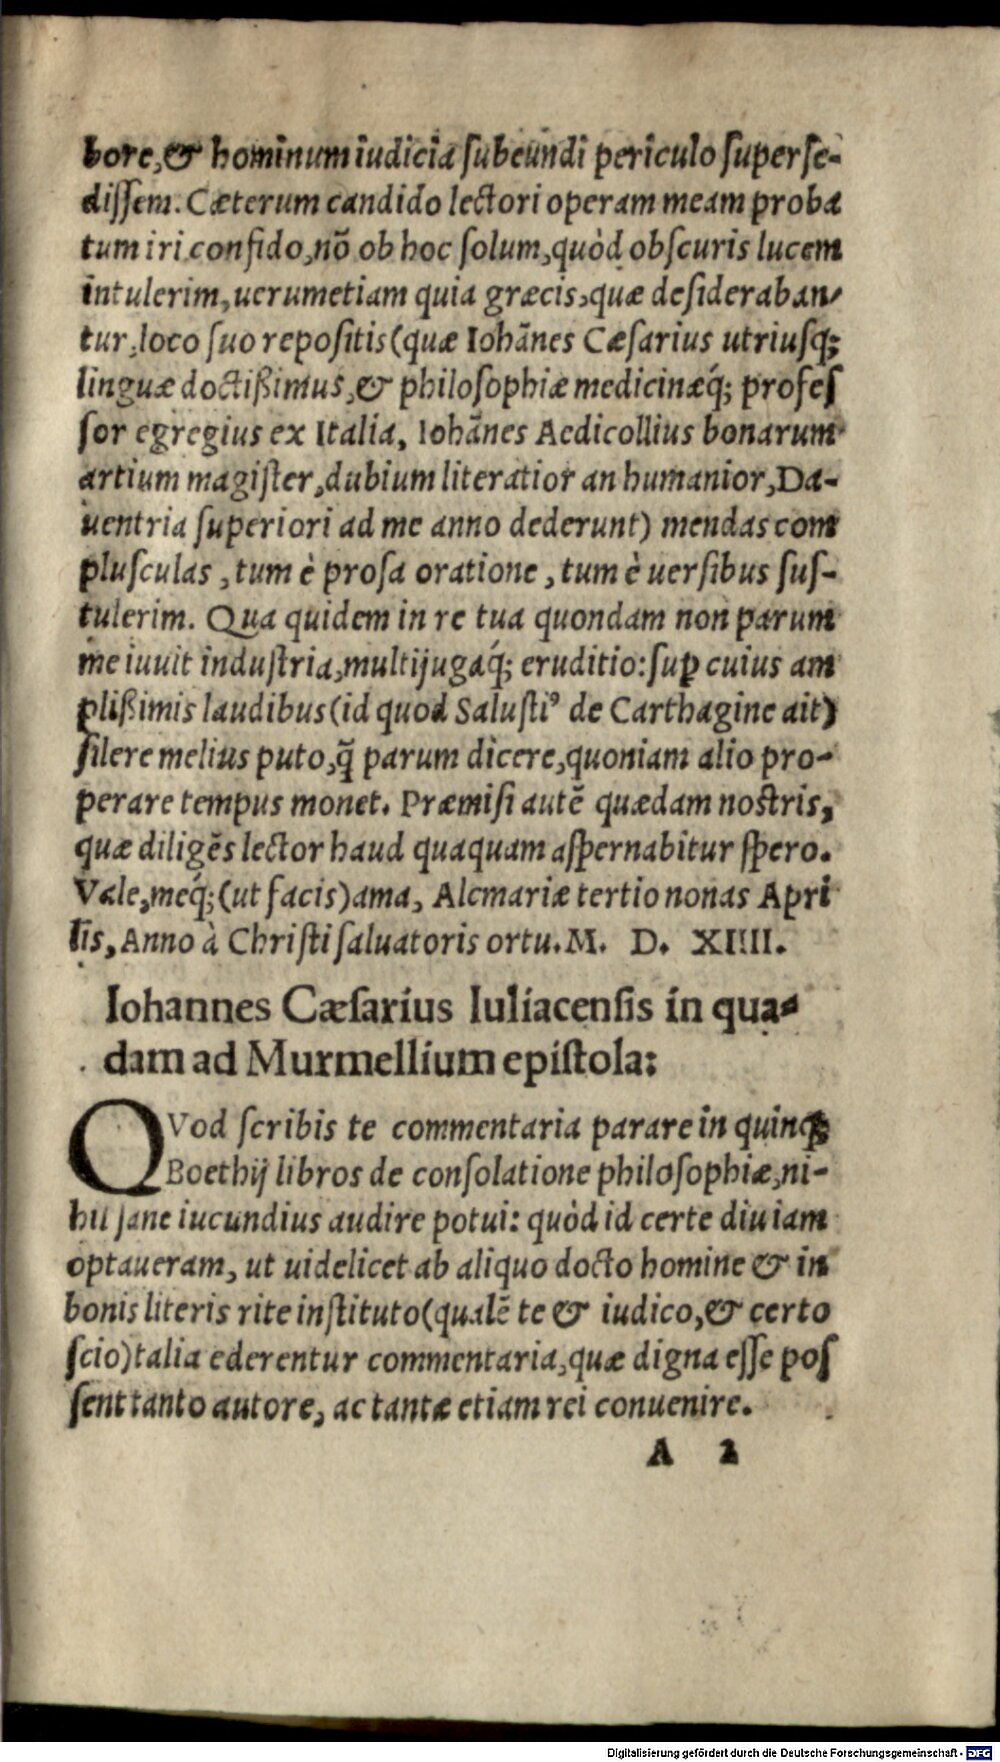 bore,& hominum iudicia ſubeundi periculo ſuperſe-
diſſem. Cæterum candido lectori operam meam proba
tum iri confido,nō ob hoc ſolum,quòd obſcuris lucem
intulerim,uerumetiam quia græcis,quæ deſideraban-
tur,loco ſuo repoſitis(quæ Iohānes Cæſarius utriusq;
linguæ doctißimus,& philoſophiæ medicinæq́; profeſ
ſor egregius ex Italia, Iohānes Aedicollius bonarum
artium magiſter,dubium literatior an humanior,Da-
uentria ſuperiori ad me anno dederunt) mendas com
pluſculas, tum è proſa oratione, tum è uerſibus ſuſ-
tulerim. Qua quidem in re tua quondam non parum
me iuuit induſtria,multijugaq́; eruditio:ſuꝑ cuius am
plißimis laudibus(id quod Saluſtiꝰ de Carthagine ait)
ſilere melius puto,q̄ parum dicere,quoniam alio pro-
perare tempus monet. Præmiſi autē quædam noſtris,
quæ diligēs lector haud quaquam aſpernabitur ſpero.
Vale,meq́;(ut facis)ama, Alcmariæ tertio nonas Apri
lis, Anno à Chriſti ſaluatoris ortu. M. D. XIIII.
Iohannes Cæſarius Iuliacenſis in qua-
dam ad Murmellium epiſtola:
QVod ſcribis te commentaria parare in quinqꝫ
Boethij libros de conſolatione philoſophiæ,ni-
hil ſane iucundius audire potui: quòd id certe diu iam
optaueram, ut uidelicet ab aliquo docto homine & in
bonis literis rite inſtituto(qualē te & iudico,& certo
ſcio)talia ederentur commentaria,quæ digna eſſe poſ
ſent tanto autore, ac tantæ etiam rei conuenire.
A 2
Digitalisierung gefördert durch die Deutsche Forschungsgemeinschaft - DFG